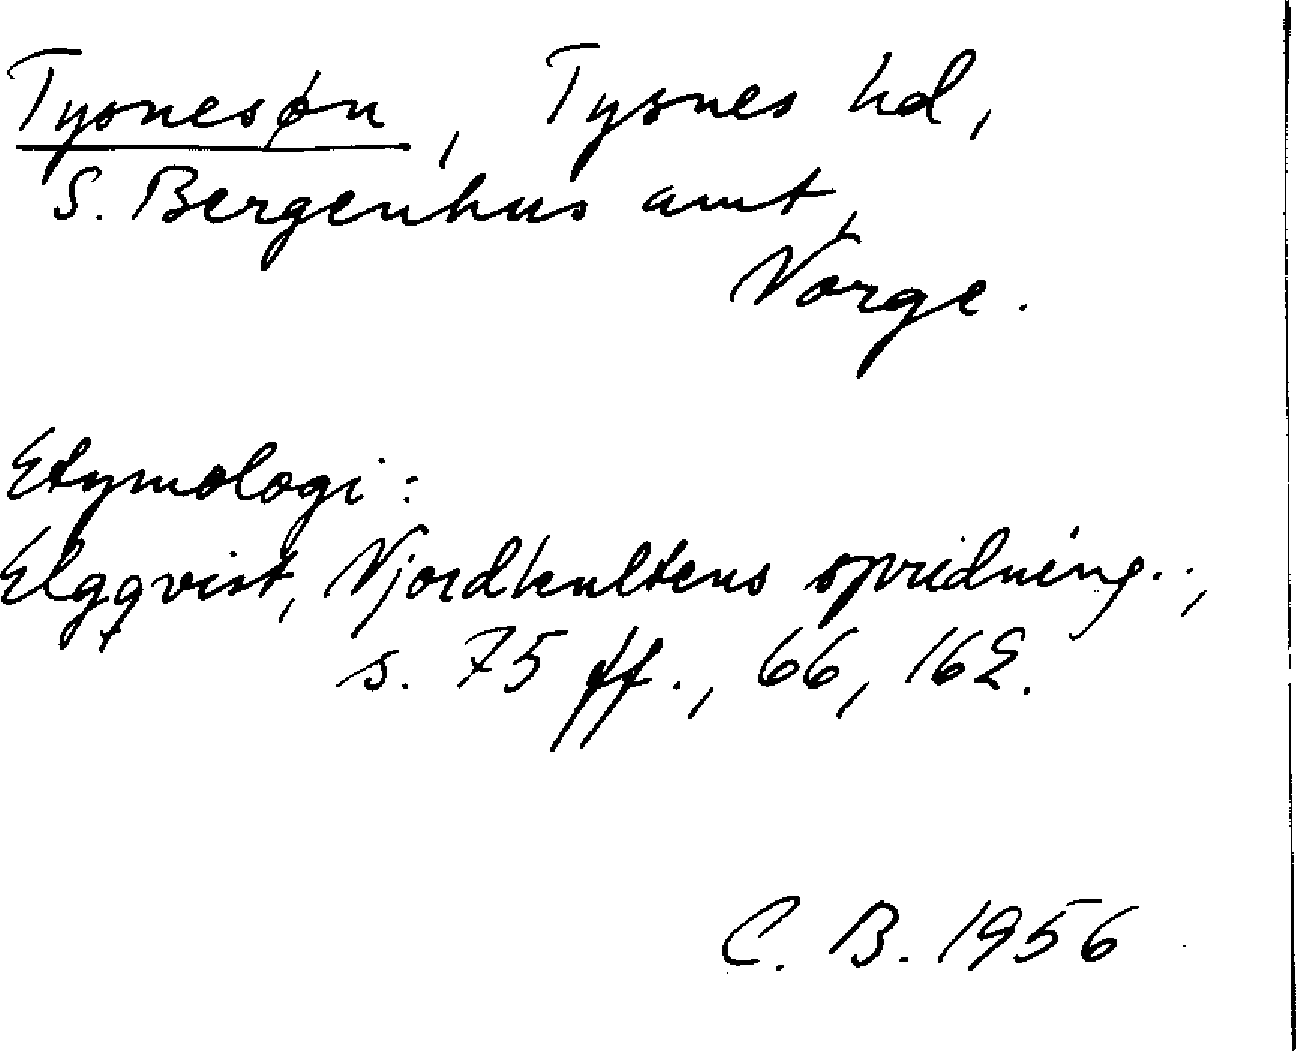 Tysnesøn, Tysnes hd,
S. Bergenhus amt,
Norge.
Etymologi:
Elgqvist, Njordkultens spridning..,
s. 75 ff., 66, 162.
C. B. 1956